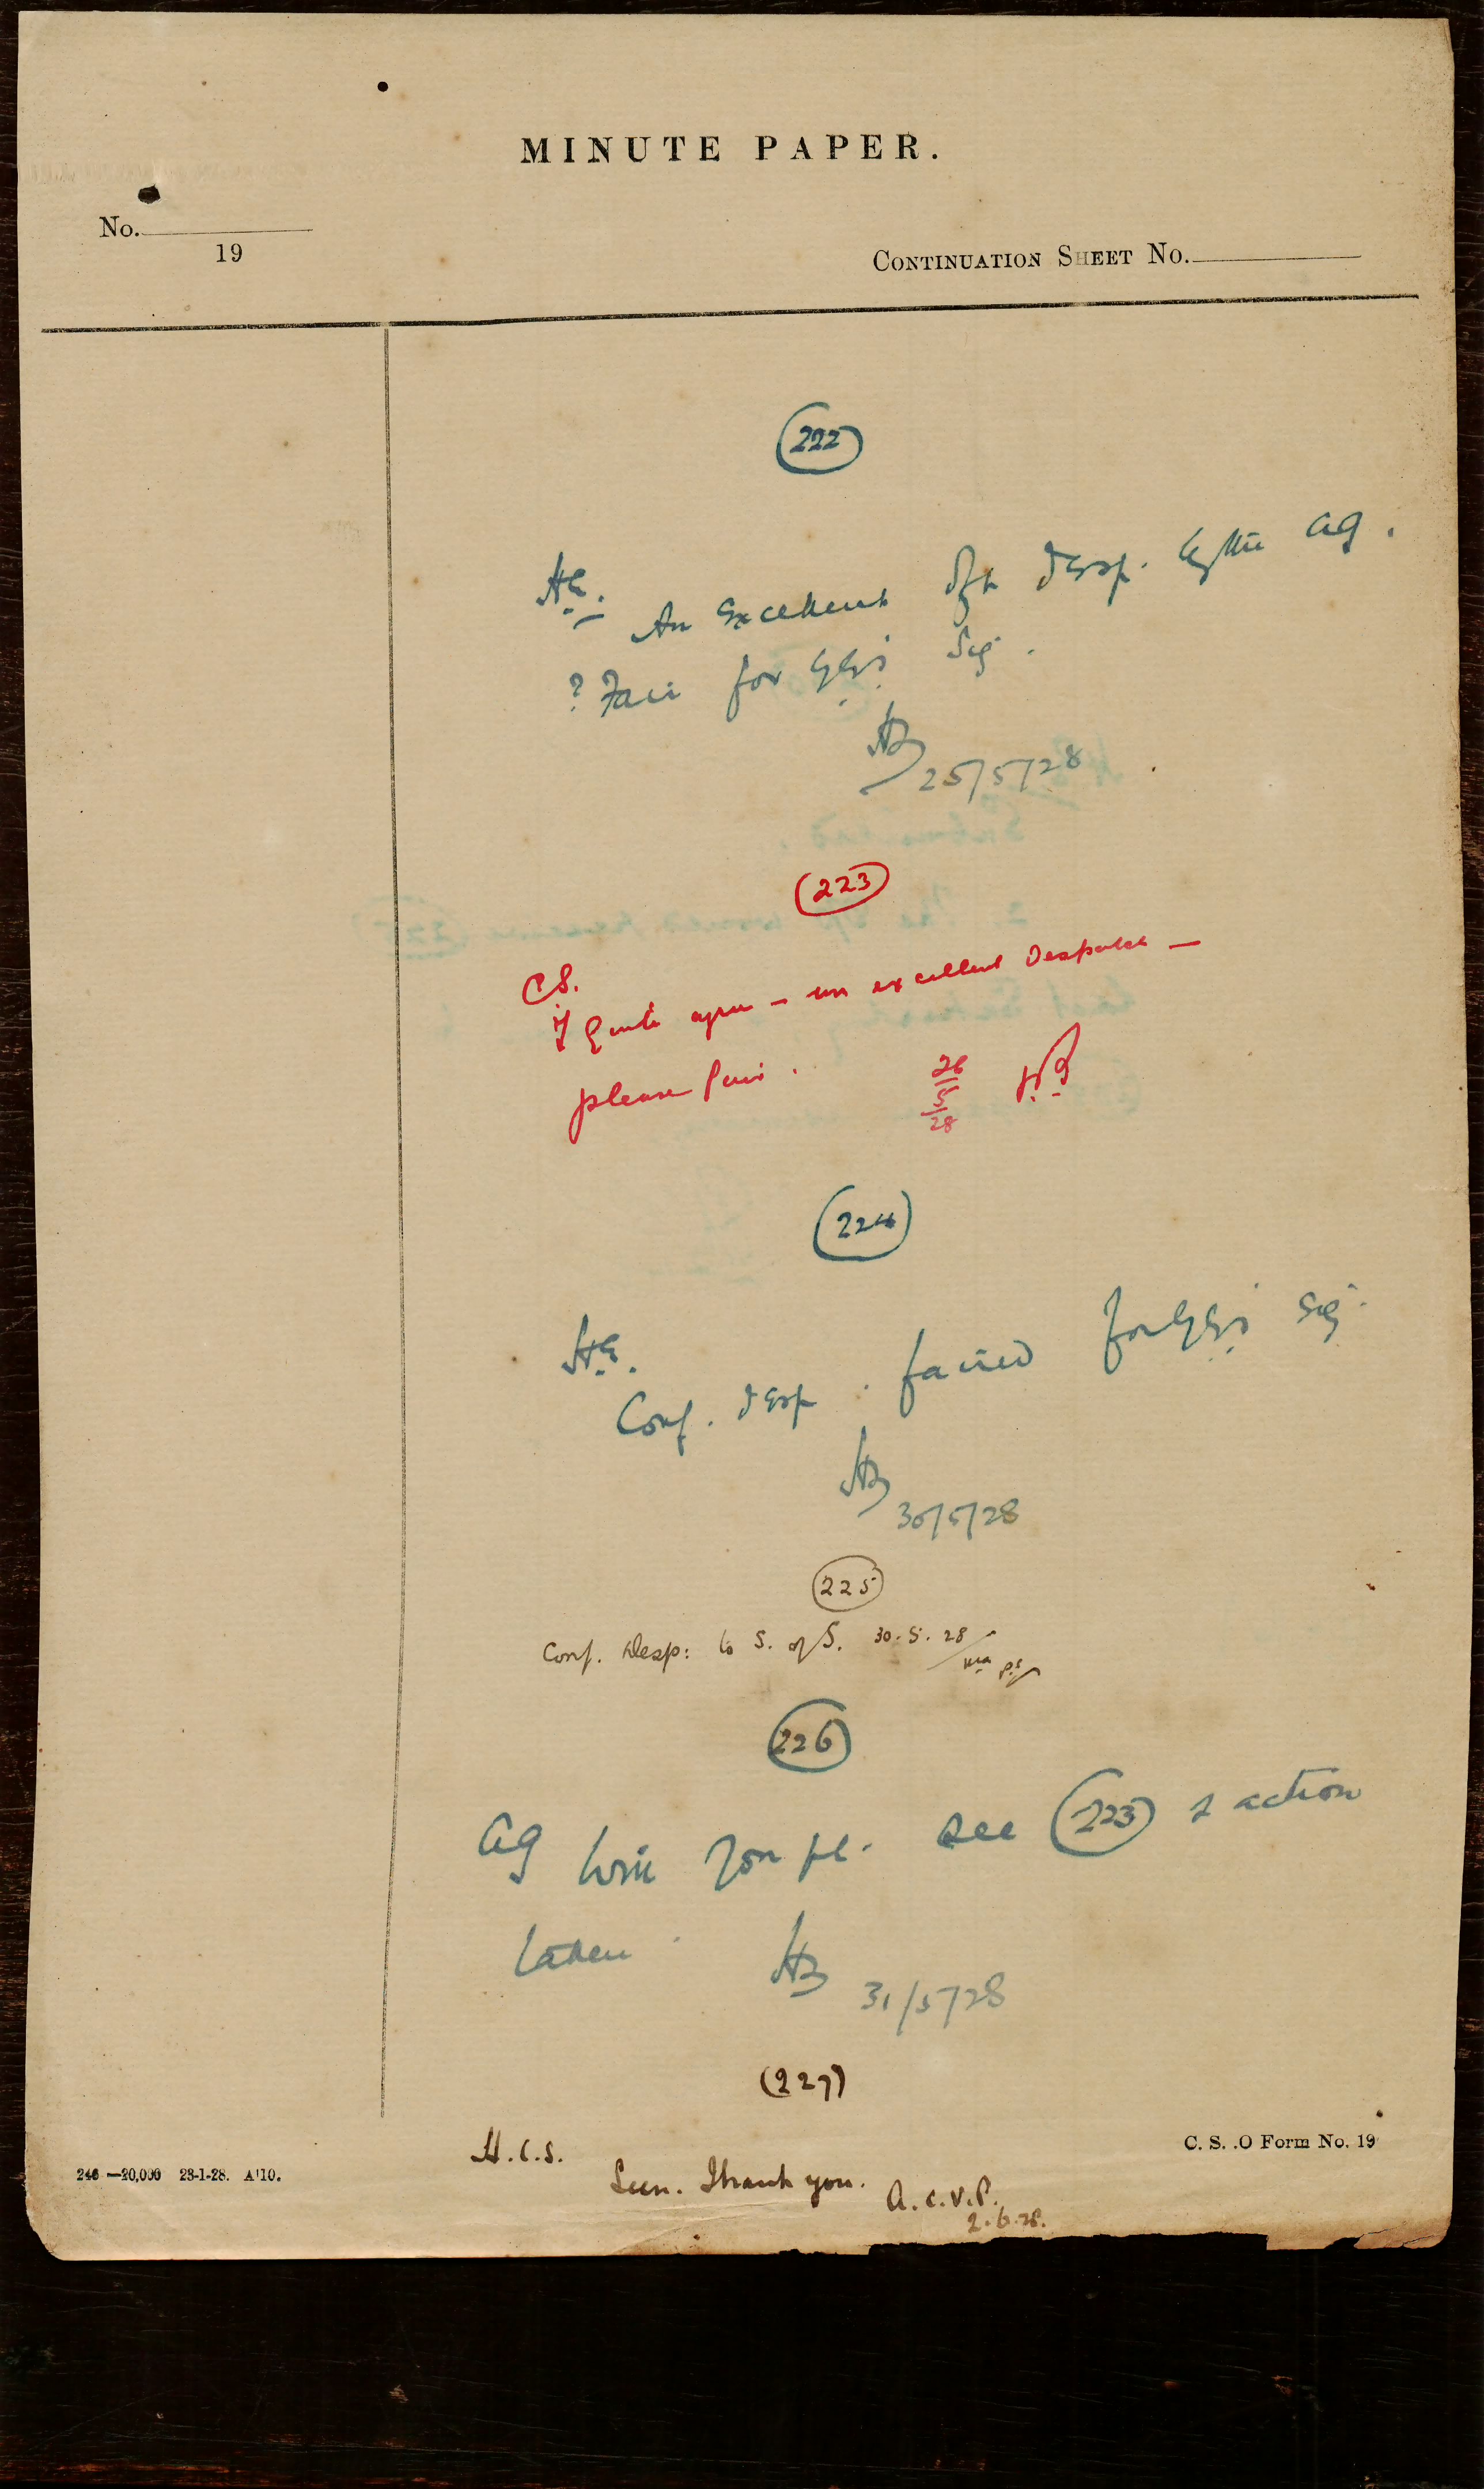 MINUTE PAPER.
No.
19
CONTINUATION SHEET No.
222
H.E.
An excellent dft desp. by the AG.
? Fair for Y.E.'s Sig.
HB
25/5/28
223
C.S.
I quite agree - an excellent Despatch -
please fair.
26/5/28
224
H.E.
Conf. desp. faired for Y.E.'s sig.
HB
30/5/28
225
Conf. Desp: to S. of S. 30.5.28
226
AG Will you pl. see 223 & action
taken.
HB 31/5/28
(227)
H.C.S.
Seen. Thank you. A.C.V.P.
2.6.28.
C. S. .O Form No. 19
246 —20,000 23-1-28. A'10.